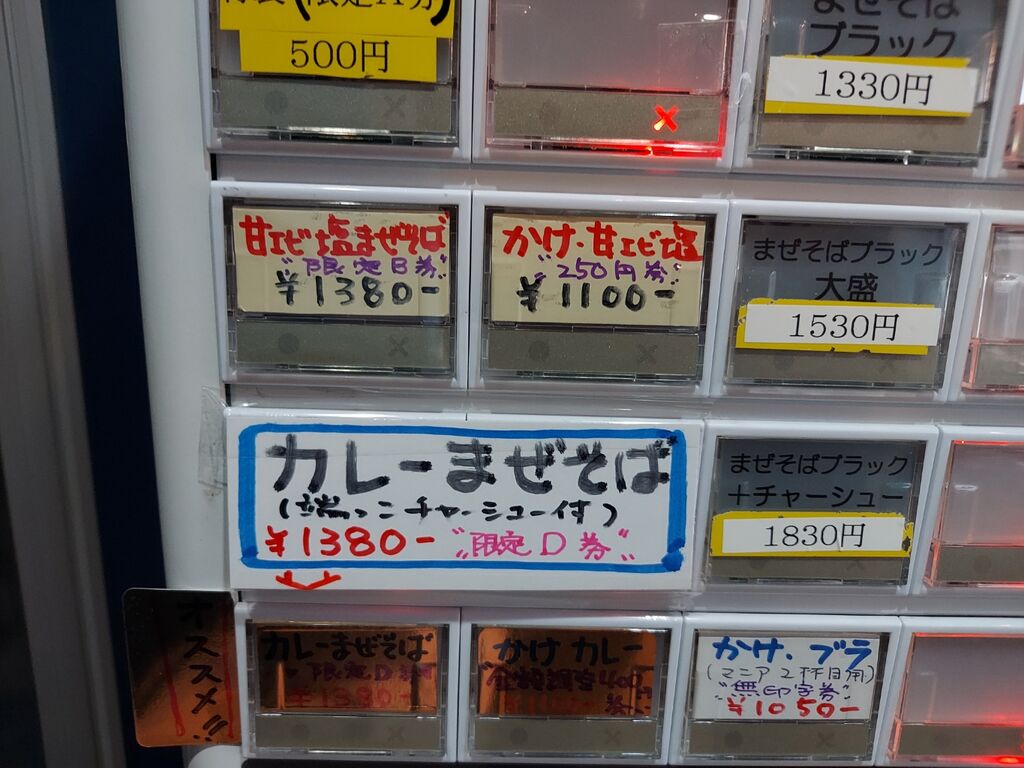 500円
まぜそば
ブラック
1330円
甘エビ塩まぜそば
"限定B券"
¥1380-
かけ・甘エビ塩
"250円券"
¥1100-
まぜそばブラック
大盛
1530円
カレーまぜそば
(端っこチャーシュー付)
¥1380- "限定D券"
まぜそばブラック
+チャーシュー
1830円
オススメ!!
カレーまぜそば
"限定D券"
¥1380-
かけ カレー
かけ、ブラ
(マニア2杯目用)
"無印字券"
¥1050-